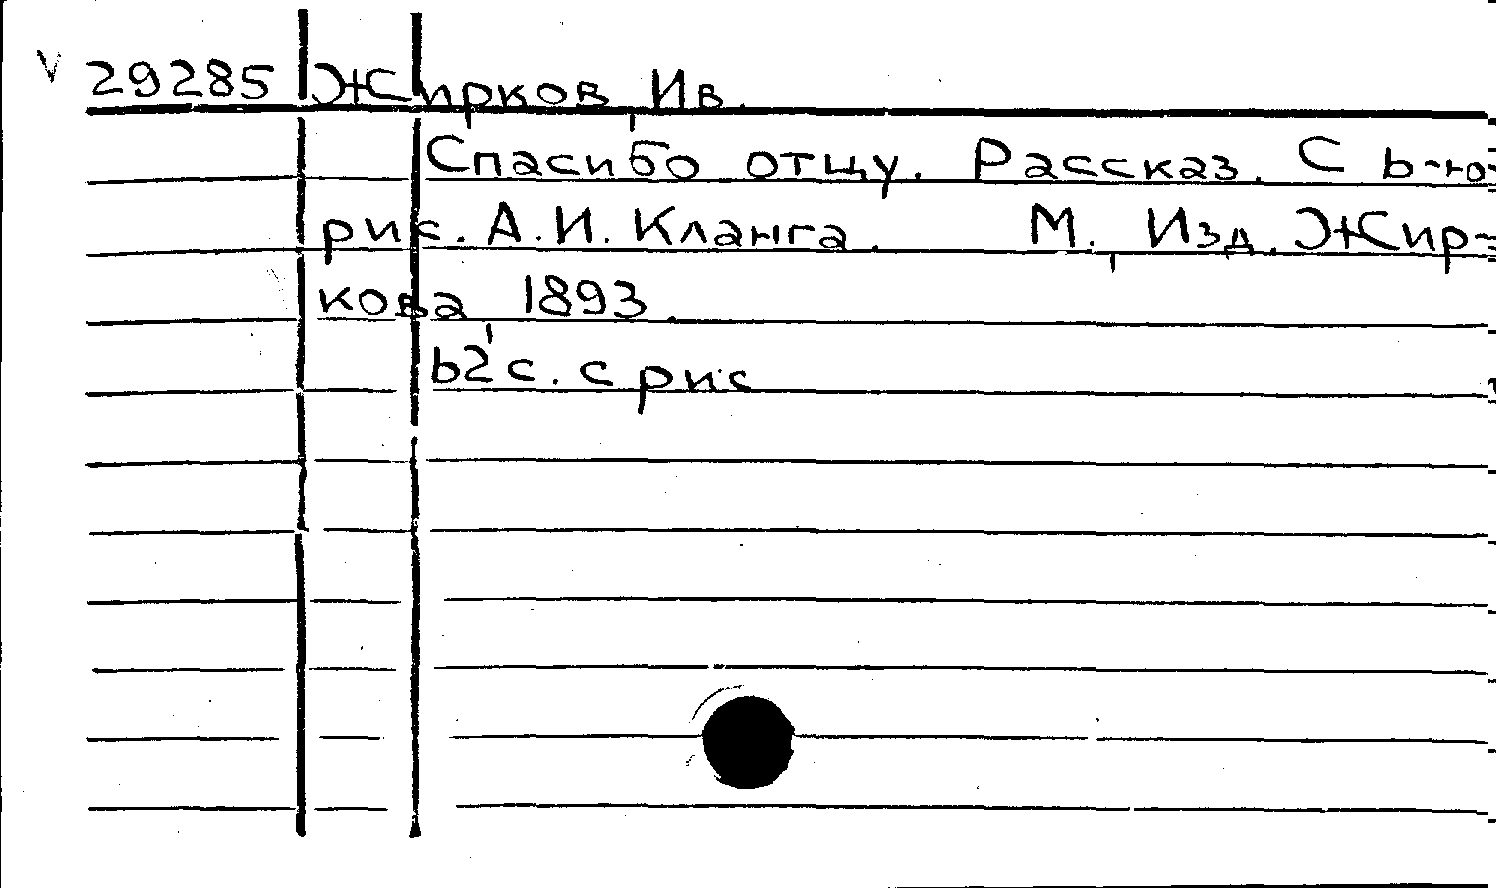 29285 Жирков, Ив.
Спасибо отцу. Рассказ. С 6-ю
рис. А.И. Кланга. М., Изд. Жир-
кова, 1893.
62 с. с рис